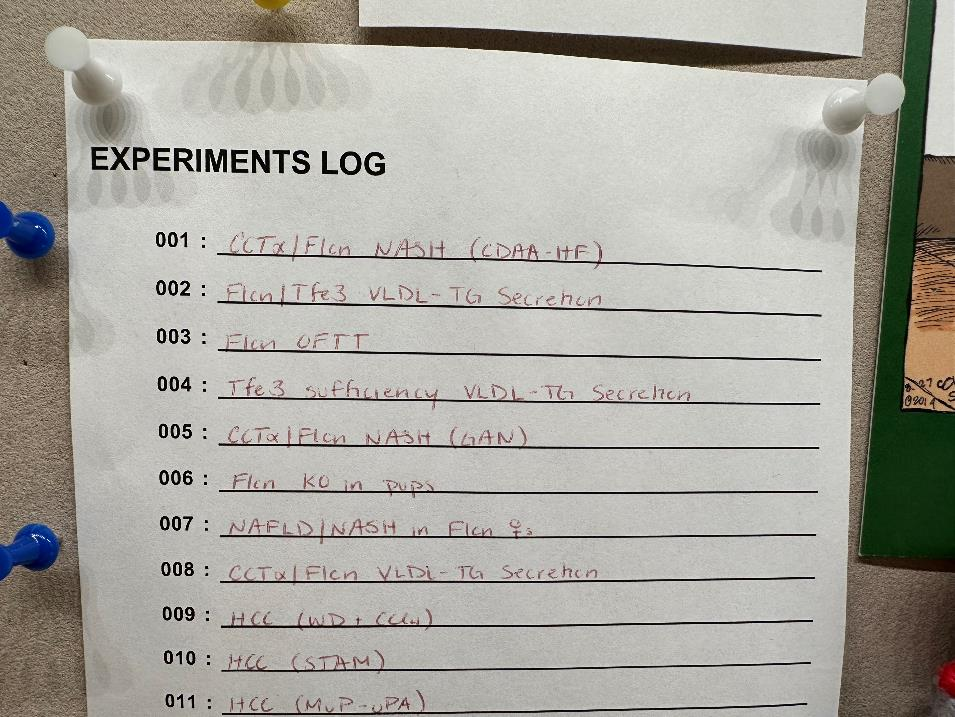 EXPERIMENTS LOG
001 : CCTα/Flcn NASH (CDAA-HF)
002 : Flcn/Tfe3 VLDL-TG Secretion
003 : Flcn OFTT
004 : Tfe3 sufficiency VLDL-TG Secretion
005 : CCTα/Flcn NASH (GAN)
006 : Flcn KO in pups
007 : NAFLD/NASH in Flcn ♀s
008 : CCTα/Flcn VLDL-TG Secretion
009 : HCC (WD + CCl4)
010 : HCC (STAM)
011 : HCC (MuP-uPA)
©2014